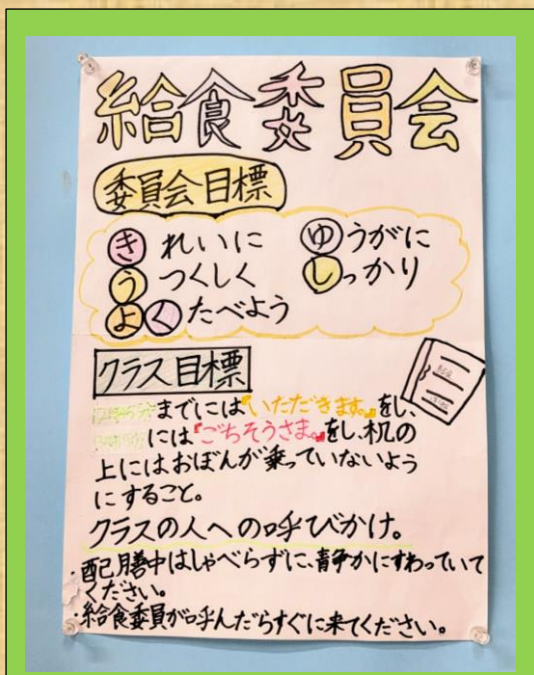 給食委員会
委員会目標
きれいに
うつくしく
よくたべよう
ゆうがに
しっかり
クラス目標
までには『いただきます。』をし、
には『ごちそうさま。』をし、机の
上にはおぼんが乗っていないよう
にすること。
クラスの人への呼びかけ。
・配膳中はしゃべらずに、静かにすわっていて
ください。
・給食委員が呼んだらすぐに来てください。